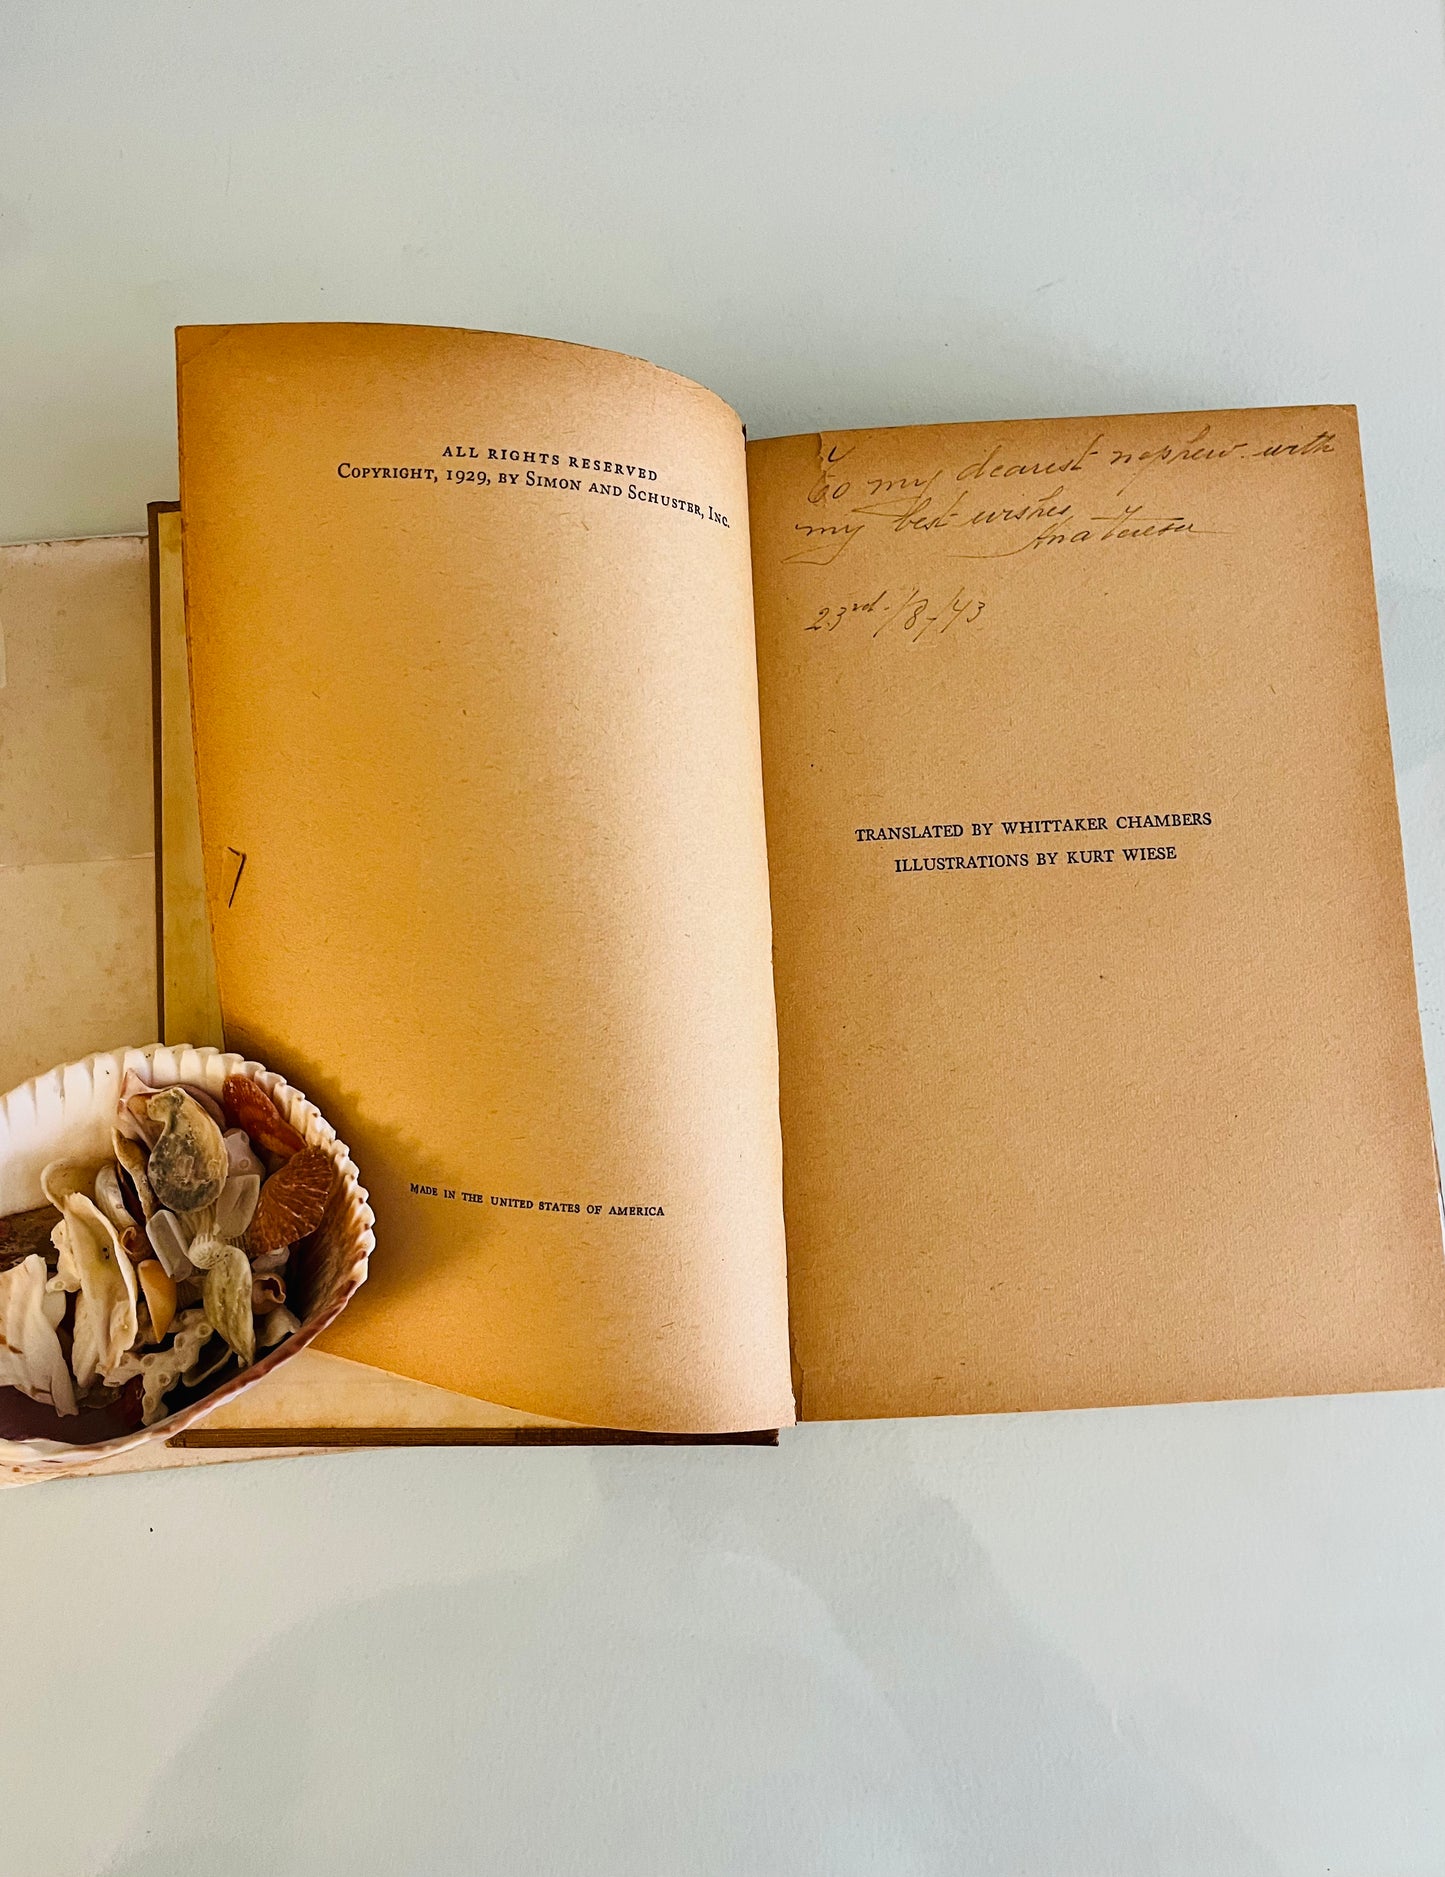 ALL RIGHTS RESERVED
COPYRIGHT, 1929, BY SIMON AND SCHUSTER, INC.
MADE IN THE UNITED STATES OF AMERICA
To my dearest nephew with
my best wishes
Ana Teresa
23rd/8/43
TRANSLATED BY WHITTAKER CHAMBERS
ILLUSTRATIONS BY KURT WIESE